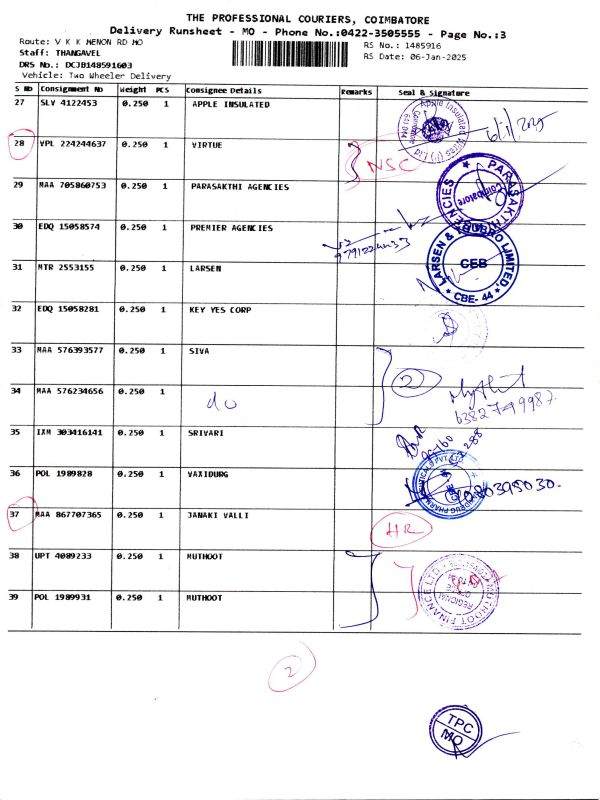 THE PROFESSIONAL COURIERS, COIMBATORE
Delivery Runsheet - MO - Phone No.:0422-3505555 - Page No.:3
Route: V K K MENON RD MO
RS No.: 1485916
Staff: THANGAVEL
RS Date: 06-Jan-2025
DRS No.: DCJB148591603
Vehicle: Two Wheeler Delivery
S No Consignment No Weight PCS Consignee Details Remarks Seal & signature
27 SLV 4122453 0.250 1 APPLE INSULATED
Apple Insulated Wires (I) Ltd Coimbatore 641 014
6/1/2025
28 VPL 224244637 0.250 1 VIRTUE NSC
29 MAA 705860753 0.250 1 PARASAKTHI AGENCIES
PARASAKTHI AGENCIES Coimbatore
30 EDQ 15058574 0.250 1 PREMIER AGENCIES
31 MTR 2553155 0.250 1 LARSEN
LARSEN & TOUBRO LIMITED. CEB CBE- 44
32 EDQ 15058281 0.250 1 KEY YES CORP
33 MAA 576393577 0.250 1 SIVA 2
34 MAA 576234656 0.250 1 do
6382749987
35 IXM 303416141 0.250 1 SRIVARI
36 POL 1989828 0.250 1 VAXIDURG
37 MAA 867707365 0.250 1 JANAKI VALLI HR
38 UPT 4089233 0.250 1 MUTHOOT
39 POL 1989931 0.250 1 MUTHOOT
MUTHOOT FINANCE LTD. REGIONAL OFFICE
2
TPC
MO